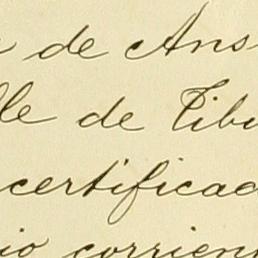 de Ans
lle de Tibu
certificad
io corrien